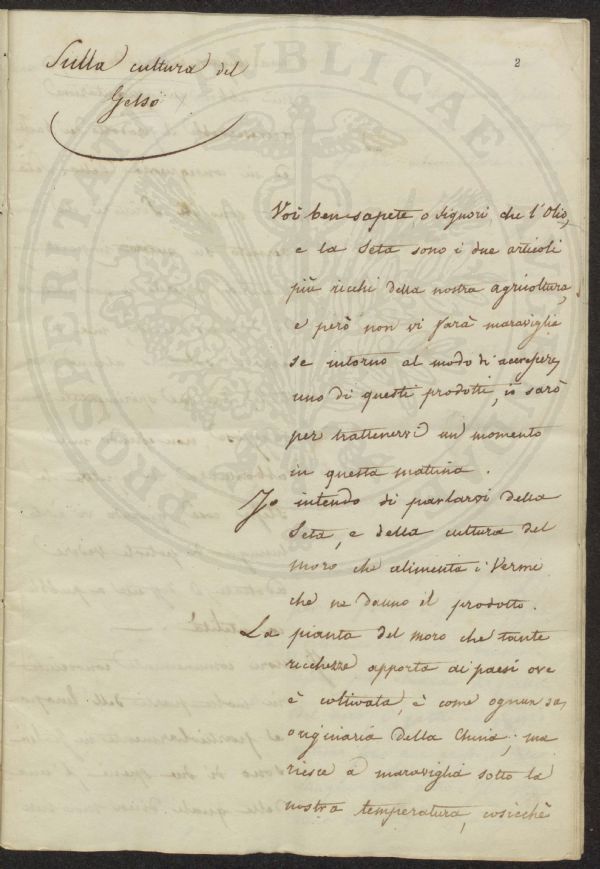 2
Sulla cultura del
Gelso
Voi ben sapete, o Signori, che l'Olio,
e la Seta sono i due articoli
più ricchi della nostra agricoltura,
e però non vi farà maraviglia
se intorno al modo di accrescere
uno di questi prodotti, io sarò
per trattenervi un momento
in questa mattina.
Io intendo di parlarvi della
Seta, e della cultura del
moro che alimenta i Vermi
che ne danno il prodotto.
La pianta del moro che tante
ricchezze apporta ai paesi ove
è coltivata, è come ognun sa,
originaria della China; ma
riesce a maraviglia sotto la
nostra temperatura, cosicchè
PROSPERITATI PUBLICAE